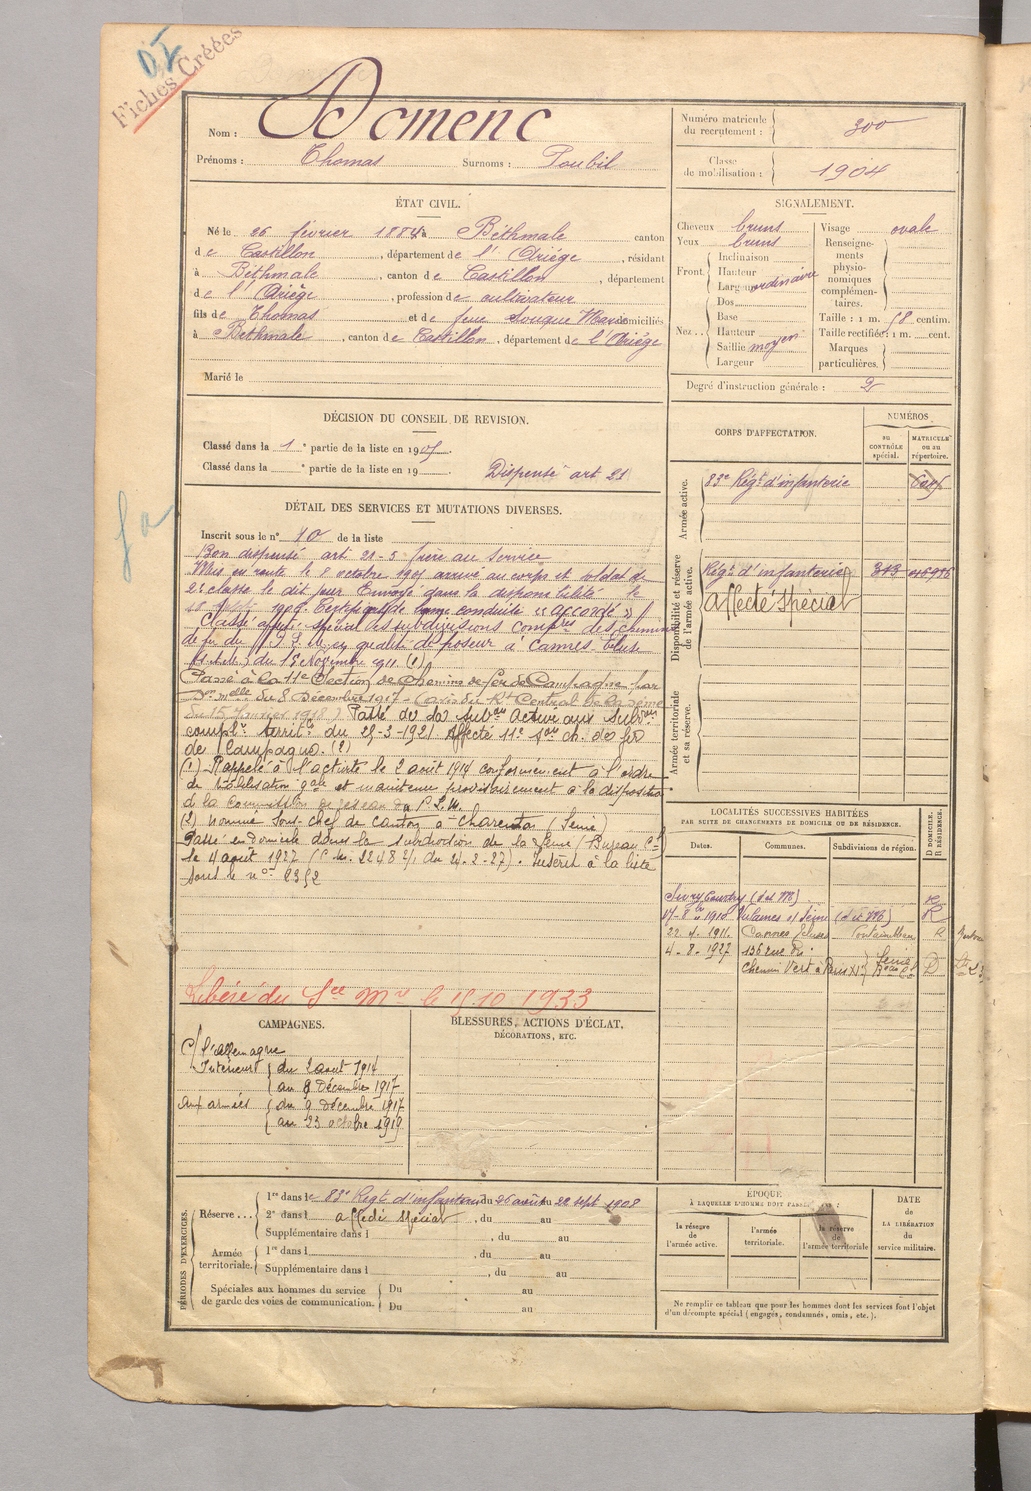 Fiches Créées
Nom : Domenc
Prénoms : Thomas Surnoms : Poubil
Numéro matricule du recrutement : 300
Classe de mobilisation : 1904
ÉTAT CIVIL.
Né le 26 février 1884 à Bethmale canton
de Castillon, département de l'Ariège, résidant
à Bethmale, canton de Castillon, département
de l'Ariège, profession de cultivateur
fils de Thomas et de feue Souque Marie domiciliés
à Bethmale, canton de Castillon, département de l'Ariège
Marié le
SIGNALEMENT.
Cheveux bruns
Yeux bruns
Front. Inclinaison
Hauteur
Largeur ordinaire
Nez. Dos
Base
Hauteur
Saillie moyen
Largeur
Visage ovale
Renseignements physionomiques complémentaires.
Taille : 1 m. 58 centim.
Taille rectifiée : 1 m. cent.
Marques particulières.
Degré d'instruction générale : 2
DÉCISION DU CONSEIL DE REVISION.
Classé dans la 1e partie de la liste en 1905
Classé dans la e partie de la liste en 19 . Dispensé art 21
DÉTAIL DES SERVICES ET MUTATIONS DIVERSES.
Inscrit sous le n° 10 de la liste
Bon dispensé art 21-5 frère au service
Mis en route le 8 octobre 1905 arrivé au corps et soldat de
2e classe le dit jour Envoyé dans la disponibilité le
18 1906. Certificat de bonne conduite "accordé"
Classé affecté spécial des subdivisions complres des chemins
de fer du P. L. M. en qualité de poseur à Cannes-Ecluse
du 1er Novembre 1911. (1)
Passé à la 11e Section de Chemins de fer de Campagne par
Don melle du 8 Décembre 1917 - (avis du Rt Central de la Seine
du 15 Janvier 1918) Passé de la subon active aux subons
complres territles du 25-3-1921 Affecté 11e Son ch. de fer
de Campagne. (2)
(1) Rappelé à l'activité le 2 août 1914 conformément à l'ordre
de mobilisation gale et maintenu provisoirement à la disposition
de la commission de réseau du P.L.M.
(2) nommé sous-chef de canton à Charenton (Seine)
Passé en domicile dans la subdivision de la Seine (Bureau Cal)
le 4 août 1927 (P. M. 2248 2/1 du 24-2-27). Inséré à la liste
sous le no 2352
Libéré du Sce Mre le 15.10 1933
CORPS D'AFFECTATION.
NUMÉROS
au CONTRÔLE spécial.
MATRICULE ou au répertoire.
Armée active.
83e Régt d'infanterie
Disponibilité et réserve de l'armée active.
Régt d'infanterie 343
affecté spécial
Armée territoriale et sa réserve.
LOCALITÉS SUCCESSIVES HABITÉES
PAR SUITE DE CHANGEMENTS DE DOMICILE OU DE RÉSIDENCE.
Dates. Communes. Subdivisions de région. D DOMICILE. R RÉSIDENCE.
Sivry Courtry (S et M) R
17-8bre 1910 Vulaines s/ Seine (S et M) R
22. 4. 1911. Cannes Ecluse Fontainebleau R
4-8-1927 136 rue du
Chemin Vert à Paris XIe Seine Beau Cal D
CAMPAGNES.
C/ l'allemagne
Intérieur du 2 aout 1914
au 8 Décembre 1917
Aux armées du 9 Décembre 1917
au 23 octobre 1919
BLESSURES, ACTIONS D'ÉCLAT,
DÉCORATIONS, ETC.
PÉRIODES D'EXERCICES.
Réserve... 1re dans le 83e Régt d'infanterie du 26 août au 22 sept 1908
2e dans l affecté spécial, du au
Supplémentaire dans l , du au
Armée territoriale. 1re dans l , du au
Supplémentaire dans l , du au
Spéciales aux hommes du service de garde des voies de communication. Du au
Du au
ÉPOQUE
À LAQUELLE L'HOMME DOIT PASSER DANS :
la réserve de l'armée active.
l'armée territoriale.
la réserve de l'armée territoriale
DATE de LA LIBÉRATION du service militaire.
Ne remplir ce tableau que pour les hommes dont les services font l'objet
d'un décompte spécial (engagés, condamnés, omis, etc.).